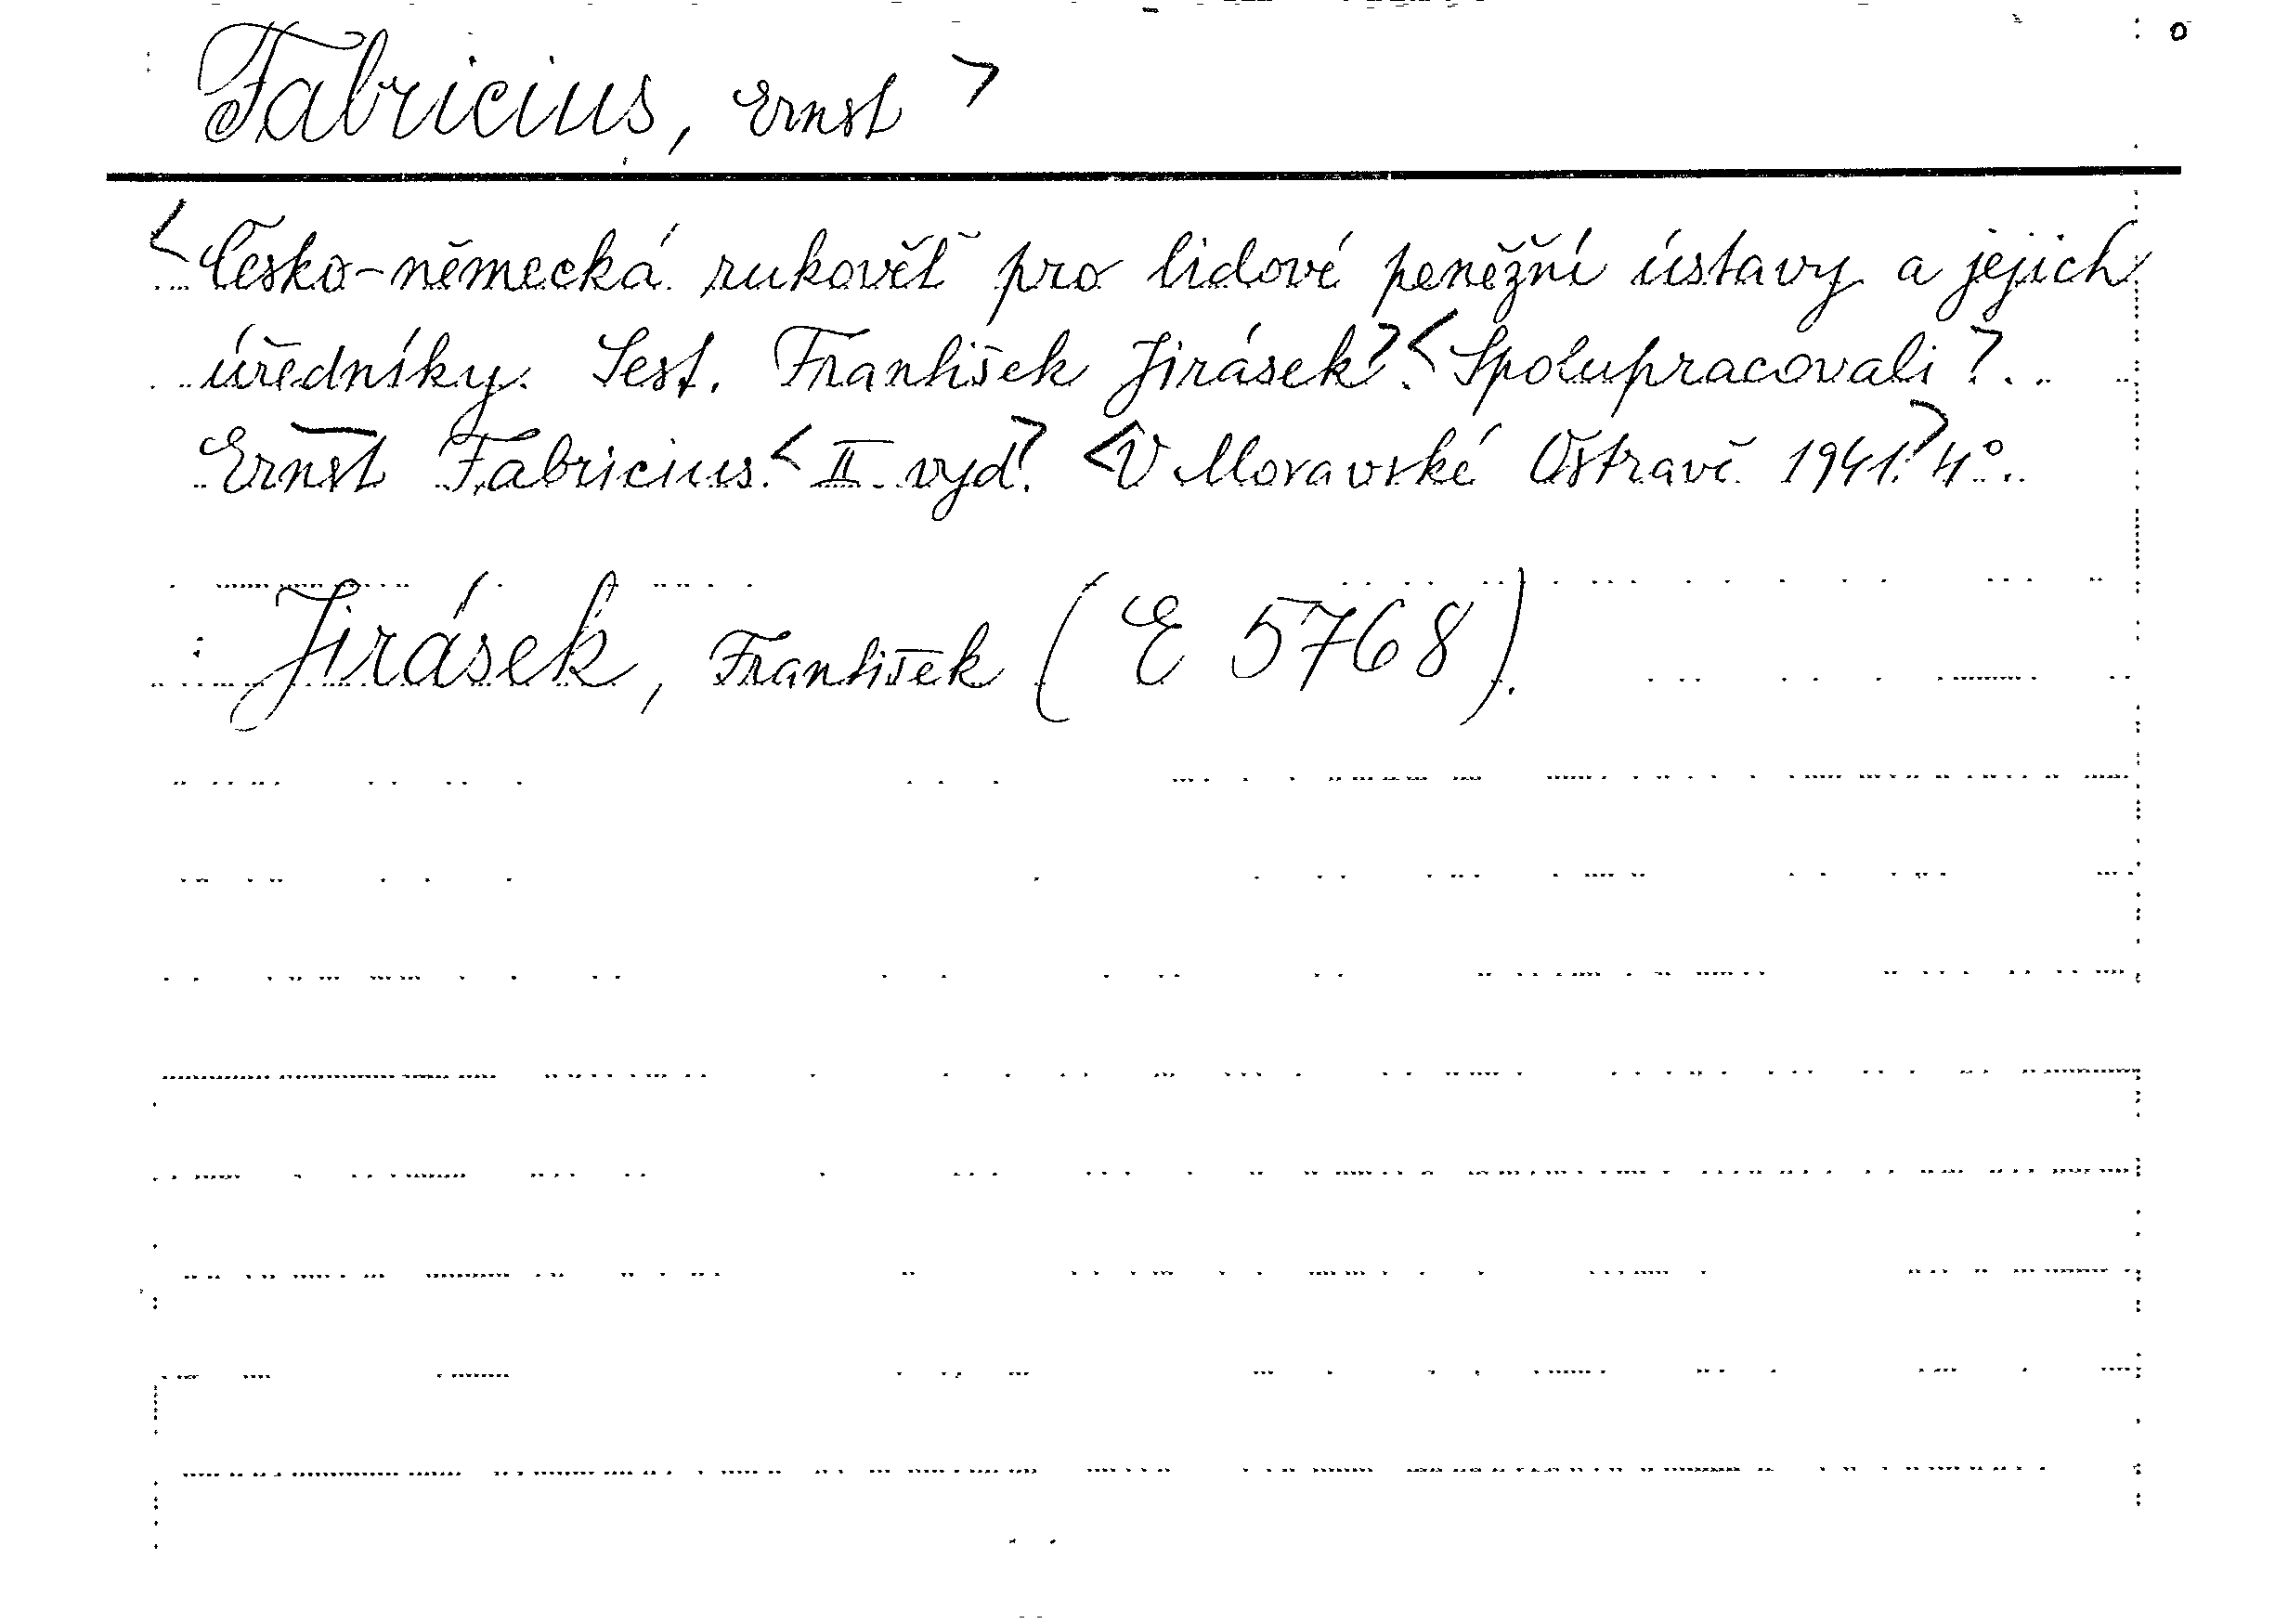 Fabricius, Ernst >
< Česko-německá rukověť pro lidové peněžní ústavy a jejich
úředníky. Sest. František Jirásek>.< Spolupracovali >...
Ernst Fabricius.< II. vyd>. <V Moravské Ostravě 1941.> 4°.
Jirásek, František (E 5768).